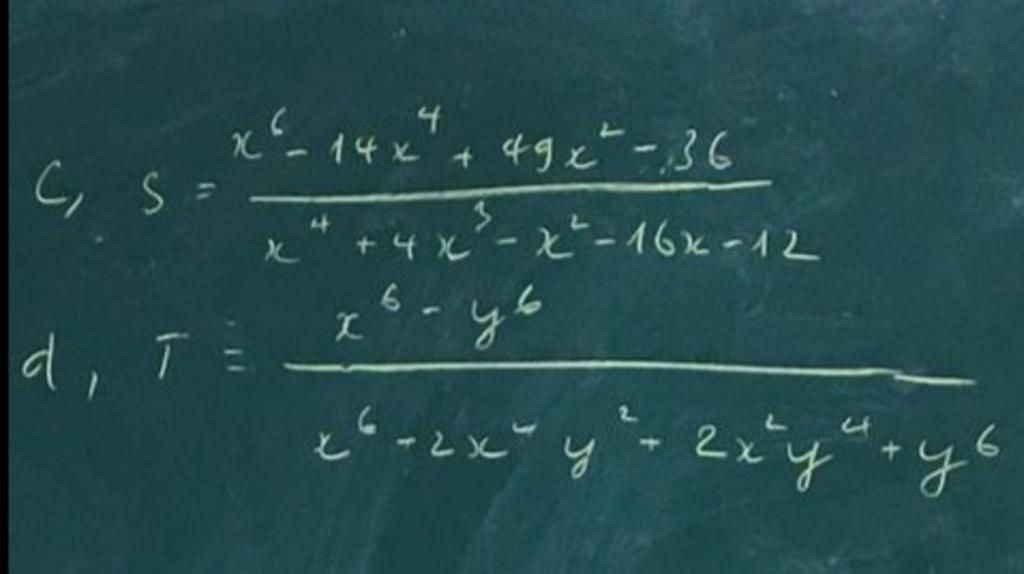 C, S = \frac{x^6 - 14x^4 + 49x^2 - 36}{x^4 + 4x^3 - x^2 - 16x - 12}
d, T = \frac{x^6 - y^6}{x^6 + 2x^4 y^2 + 2x^2 y^4 + y^6}